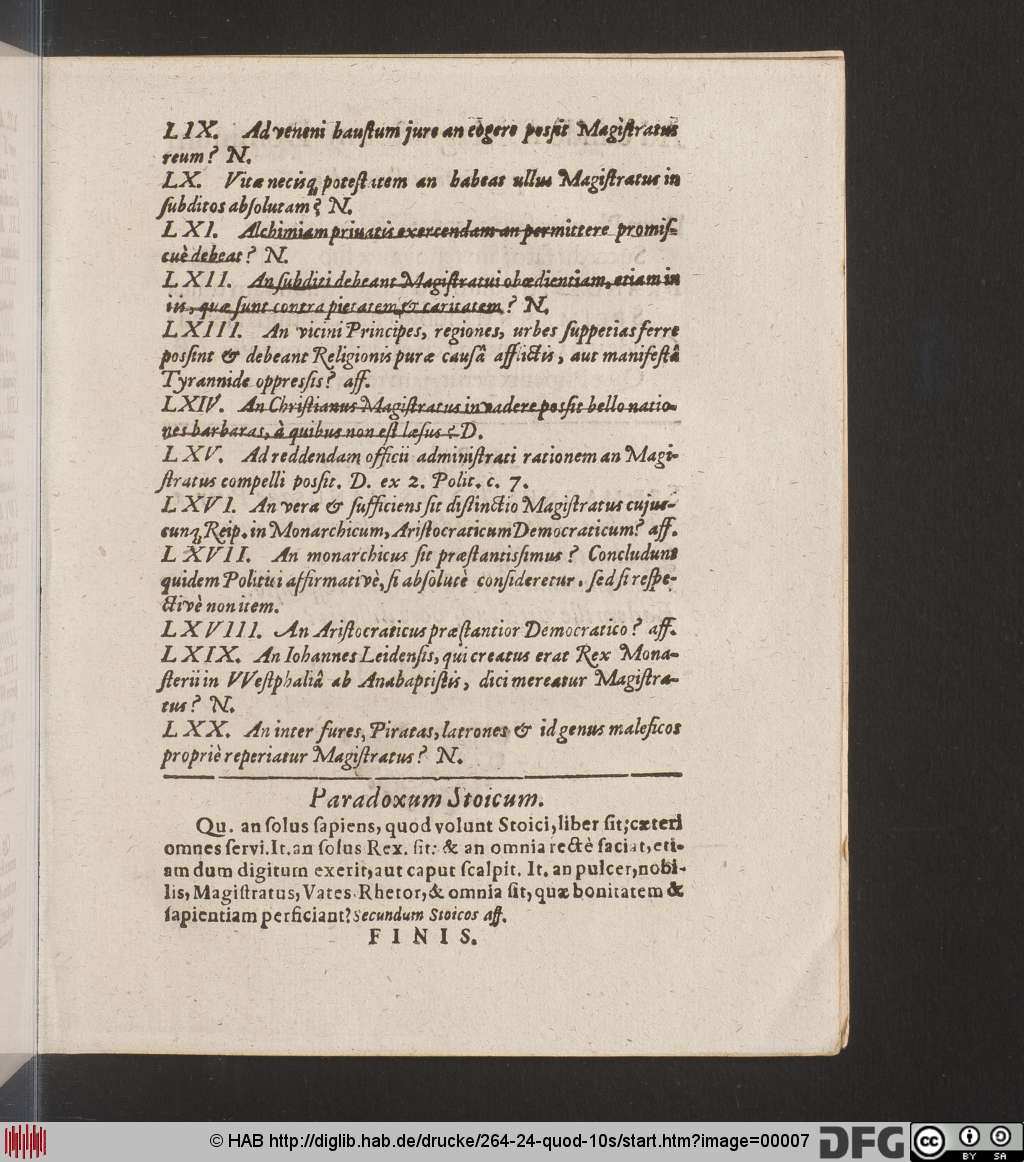 LIX. Ad veneni haustum jure an cogere possit Magistratus
reum? N.
LX. Vitæ necisq́; potestatem an habeat ullus Magistratus in
subditos absolutam? N.
LXI. Alchimiam privatis exercendam an permittere promis-
cuè debeat? N.
LXII. An subditi debeant Magistratui obœdientiam, etiam in
iis, quæ sunt contra pietatem, & caritatem? N.
LXIII. An vicini Principes, regiones, urbes suppetias ferre
possint & debeant Religionis puræ causâ afflictis, aut manifestâ
Tyrannide oppressis? aff.
LXIV. An Christianus Magistratus invadere possit bello natio-
nes barbaras, à quibus non est læsus? D.
LXV. Ad reddendam officii administrati rationem an Magi-
stratus compelli possit. D. ex 2. Polit. c. 7.
LXVI. An vera & sufficiens sit distinctio Magistratus cujus-
cunq; Reip. in Monarchicum, Aristocraticum Democraticum? aff.
LXVII. An monarchicus sit præstantissimus? Concludunt
quidem Politici affirmativè, si absolutè consideretur. sed si respe-
ctivè non item.
LXVIII. An Aristocraticus præstantior Democratico? aff.
LXIX. An Iohannes Leidensis, qui creatus erat Rex Mona-
sterii in VVestphaliâ ab Anabaptistis, dici mereatur Magistra-
tus? N.
LXX. An inter fures, Piratas, latrones & id genus maleficos
propriè reperiatur Magistratus? N.
Paradoxum Stoicum.
Qu. an solus sapiens, quod volunt Stoici, liber sit; cæteri
omnes servi. It. an solus Rex. sit: & an omnia rectè faciat, eti-
am dum digitum exerit, aut caput scalpit. It. an pulcer, nobi-
lis, Magistratus, Vates Rhetor, & omnia sit, quæ bonitatem &
sapientiam perficiant? Secundum Stoicos aff.
FINIS.
© HAB http://diglib.hab.de/drucke/264-24-quod-10s/start.htm?image=00007 DFG cc BY SA